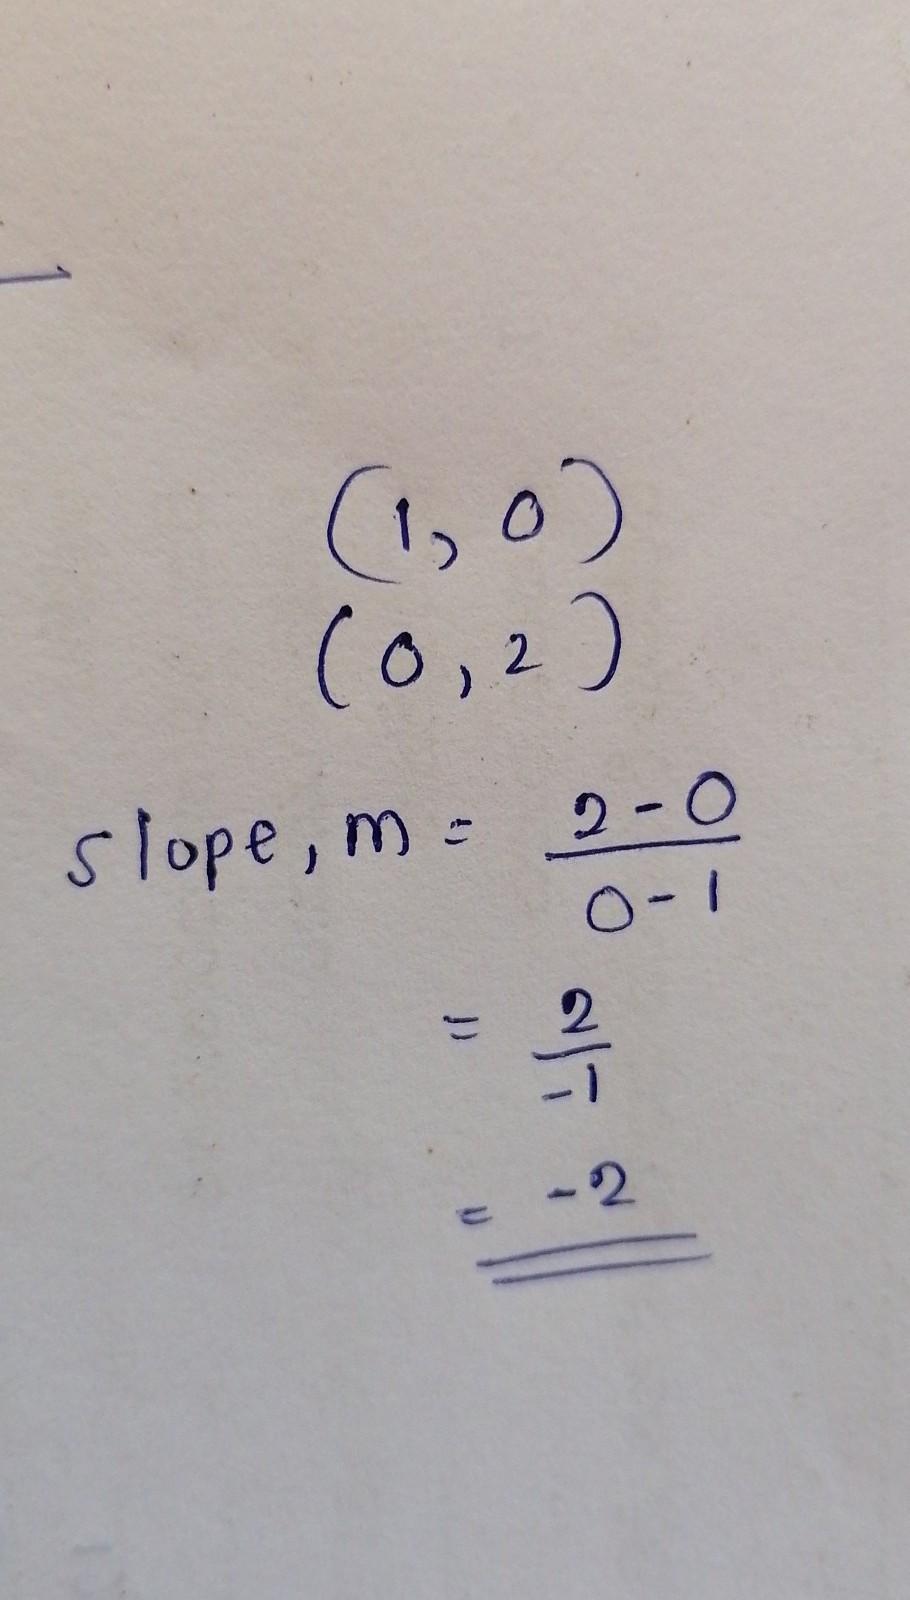 (1, 0)
(0, 2)
slope, m = 2-0
0-1
= 2
-1
= -2